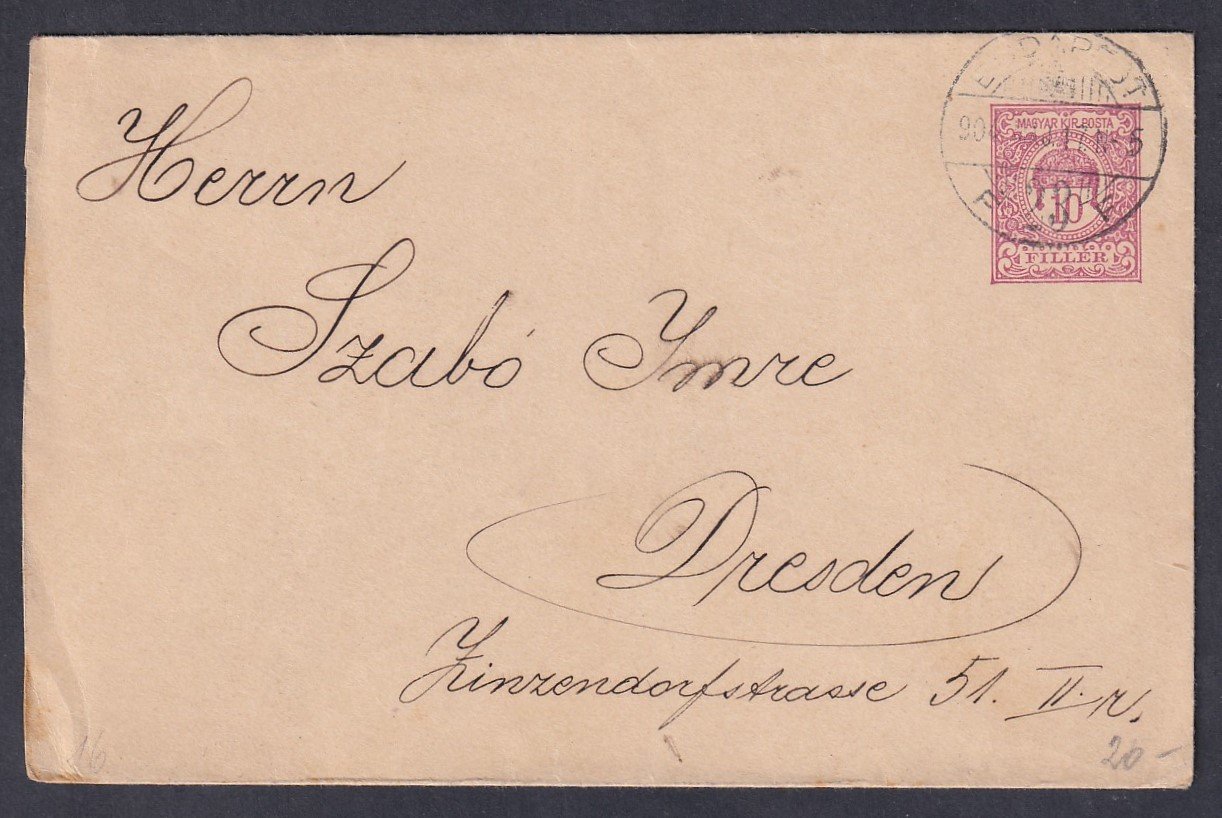 Herrn
Szabó Imre
Dresden
Zinzendorfstrasse 51. II. r.
MAGYAR KIR. POSTA
10
FILLER
BUDAPEST
20-
16